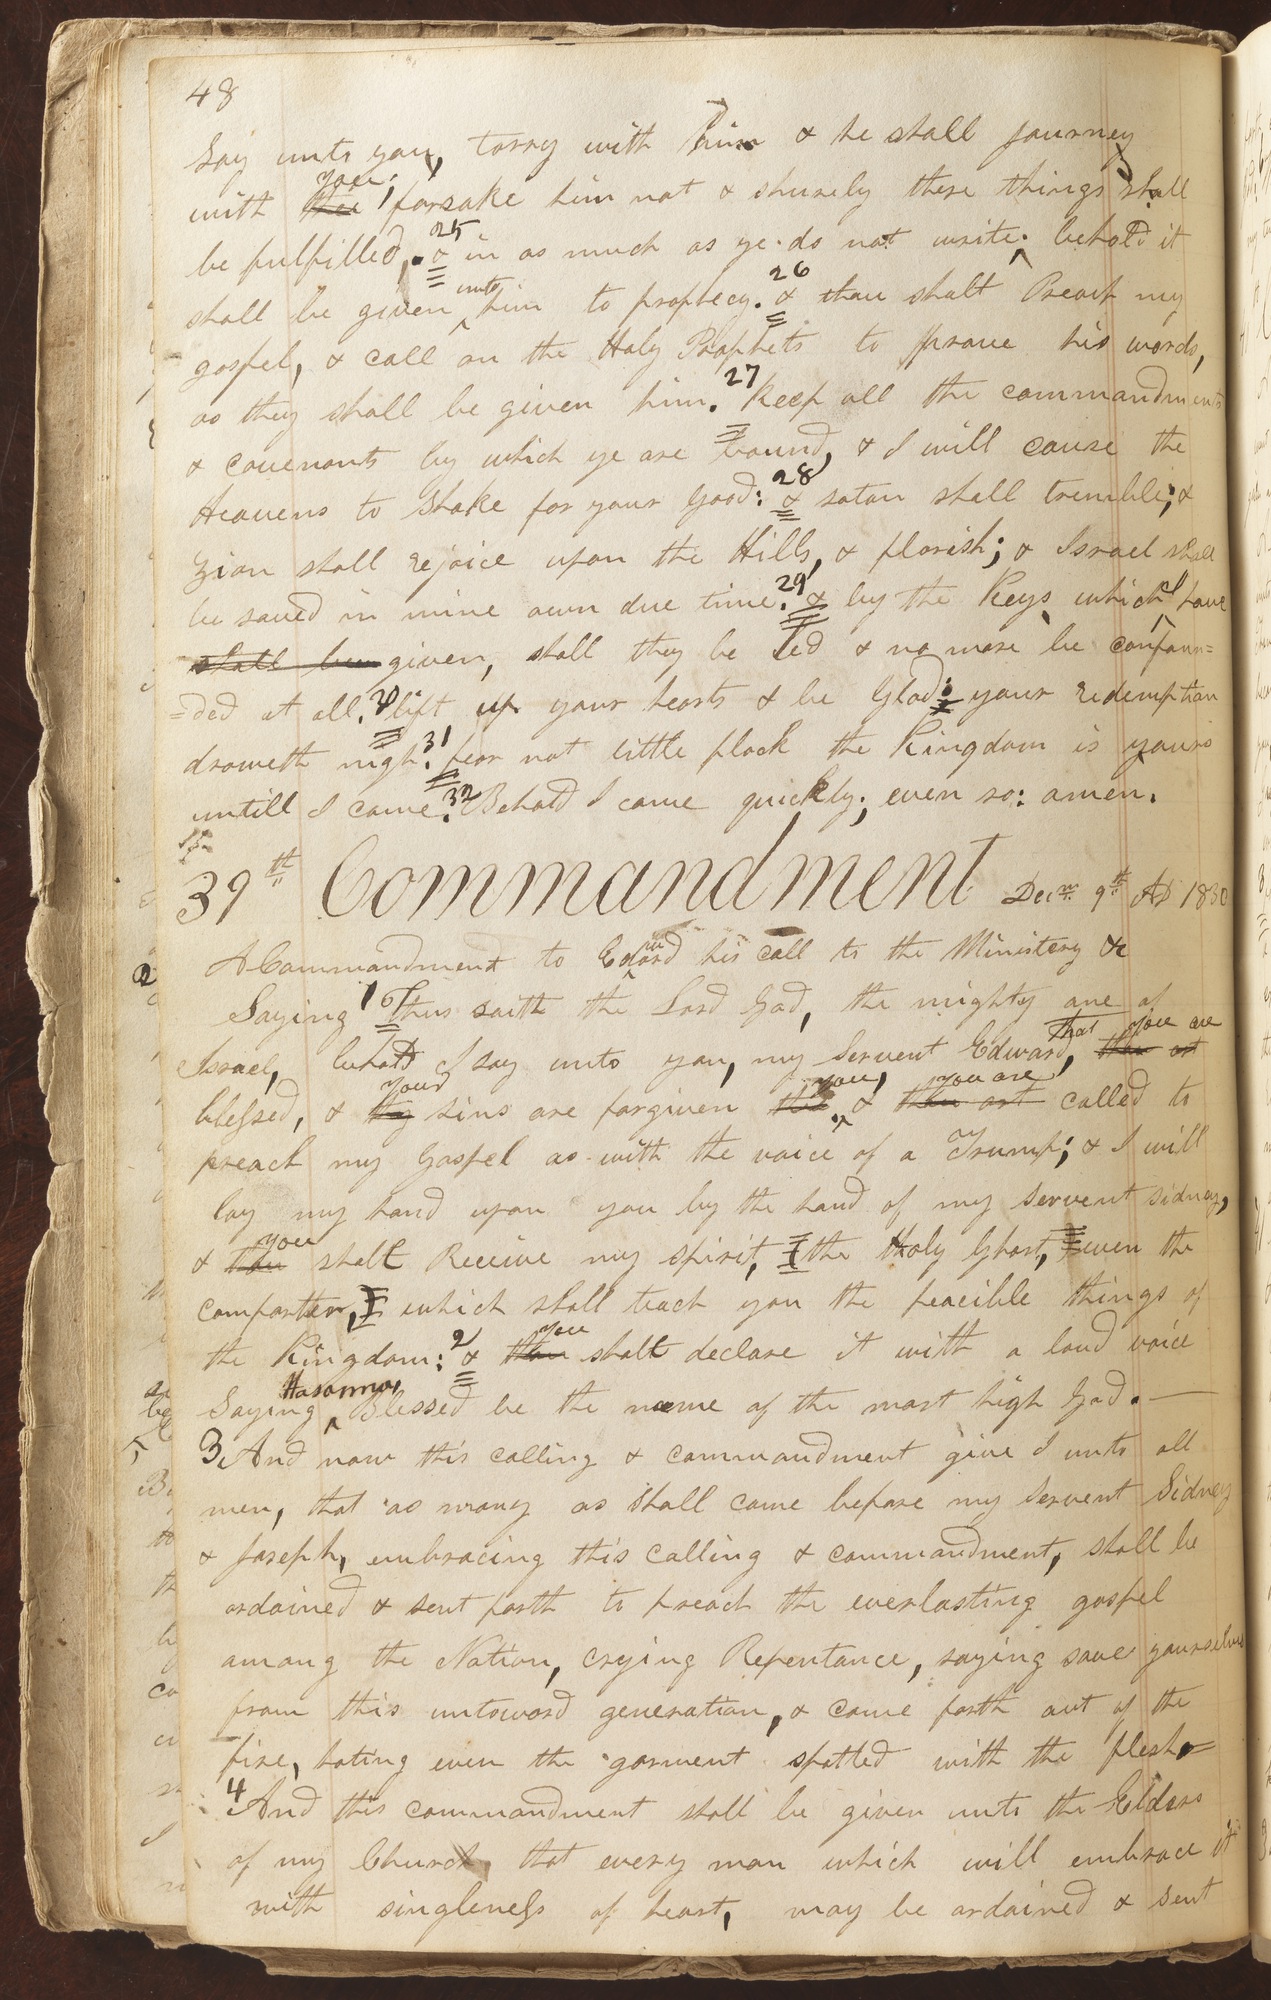 48
Say unto you, tarry with him & he shall journey
with thee you; forsake him not & shurely these things shall
be fulfilled. 25 & in as much as ye do not write, behold it
shall be given unto him to prophecy. 26 & thou shalt Preach my
gospel, & call on the Holy Prophets to prove his words,
as they shall be given him. 27 keep all the commandments
& covenants by which ye are bound, & I will cause the
Heavens to Shake for your Good: 28 & satan shall tremble; &
Zion shall rejoice upon the Hills, & florish; & Israel shall
be saved in mine own due time. 29 & by the Keys which I have
shall be given, shall they be led & no more be confoun=
=ded at all. 30 lift up your hearts & be Glad: your redemption
draweth nigh. 31 fear not little flock the Kingdom is yours
untill I come. 32 Behold I come quickly; even so: amen.
39th Commandment Decm. 9th AD 1830
A Commandment to Edward his call to the Ministery &c
Saying 1 Thus saith the Lord God, the mighty one of
Israel, behold I say unto you, my Servent Edward, that thou art you are
blessed, & thy your sins are forgiven thee you, & thou art you are called to
preach my Gospel as with the voice of a Trump; & I will
lay my hand upon you by the hand of my Servent Sidney,
& thou you shalt Receive my spirit, the Holy Ghost, even the
comforter, which shall teach you the peacible things of
the Kingdom: 2 & thou you shalt declare it with a loud voice
Saying Hosanna, Blessed be the name of the most high God. —
3 And now this calling & commandment give I unto all
men, that as many as shall come before my Servent Sidney
& Joseph, embracing this calling & commandment, shall be
ordained & sent forth to preach the everlasting gospel
among the Nation, crying Repentance, saying save yourselves
from this untoword generation, & come forth out of the
fire, hating even the garment spotted with the flesh =
4 And this commandment shall be given unto the Elders
of my Church, that every man which will embrace it
with singleness of heart, may be ordained & sent